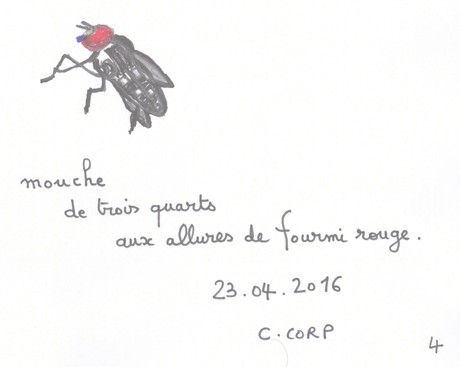 mouche
de trois quarts
aux allures de fourmi rouge.
23.04.2016
C.CORP
4